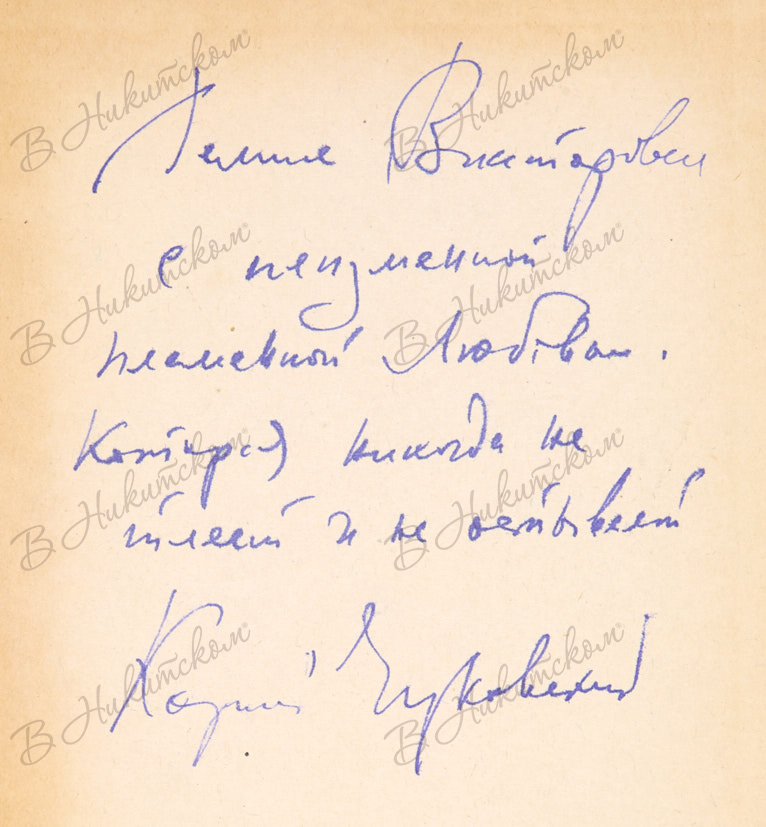 Галине Викторовне
с неизменной
пламенной любовью.
Которая никогда не
тлеет и не остывает
Корней Чуковский
В Никитском
В Никитском
В Никитском
В Никитском
В Никитском
В Никитском
В Никитском
В Никитском